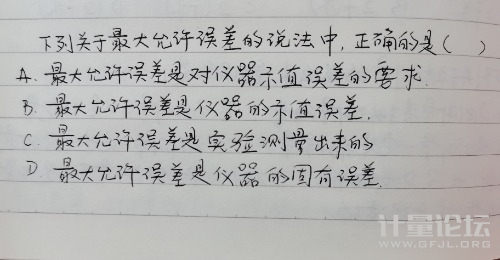 下列关于最大允许误差的说法中,正确的是( )
A. 最大允许误差是对仪器示值误差的要求.
B. 最大允许误差是仪器的示值误差.
C. 最大允许误差是实验测量出来的
D. 最大允许误差是仪器的固有误差.
计量论坛
WWW.GFJL.ORG